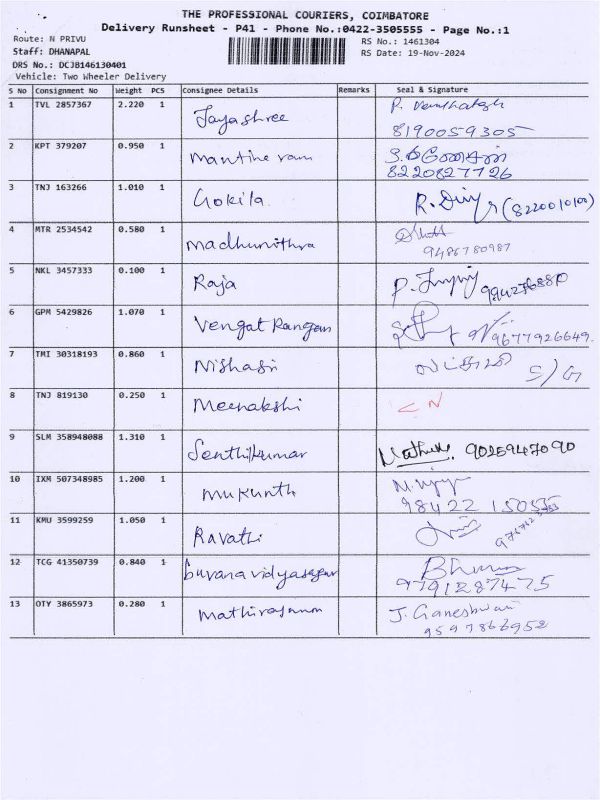 THE PROFESSIONAL COURIERS, COIMBATORE
Delivery Runsheet - P41 - Phone No.:0422-3505555 - Page No.:1
Route: N PRIVU
RS No.: 1461304
Staff: DHANAPAL
RS Date: 19-Nov-2024
DRS No.: DCJB146130401
Vehicle: Two Wheeler Delivery
S No Consignment No Weight PCS Consignee Details Remarks Seal & Signature
1 TVL 2857367 2.220 1 Jayashree
8190059305
2 KPT 379207 0.950 1
8220827726
3 TNJ 163266 1.010 1 Gokila. (8220010100)
4 MTR 2534542 0.580 1 Madhunithra
9486780987
5 NKL 3457333 0.100 1 Raja
6 GPM 5429826 1.070 1 Vengat Rangan 9677926649.
7 TMI 30318193 0.860 1 Nishasri
8 TNJ 819130 0.250 1 Meenakshi
9 SLM 358948088 1.310 1 Senthilkumar 9025947090
10 IXM 507348985 1.200 1 Mukunth
98422
11 KMU 3599259 1.050 1 Ravathi
12 TCG 41350739 0.840 1 buvana vidyasagar
9791287475
13 OTY 3865973 0.280 1 J. Ganeshwari
9597866952